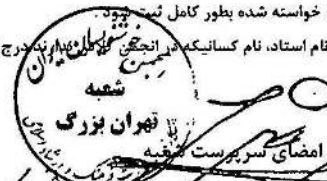 خواسته شده بطور کامل ثبت شود.
نام استاد، نام کسانیکه در انجمن درج
انجمن خوشنویسان ایران
شعبه
تهران بزرگ
امضای سرپرست شعبه